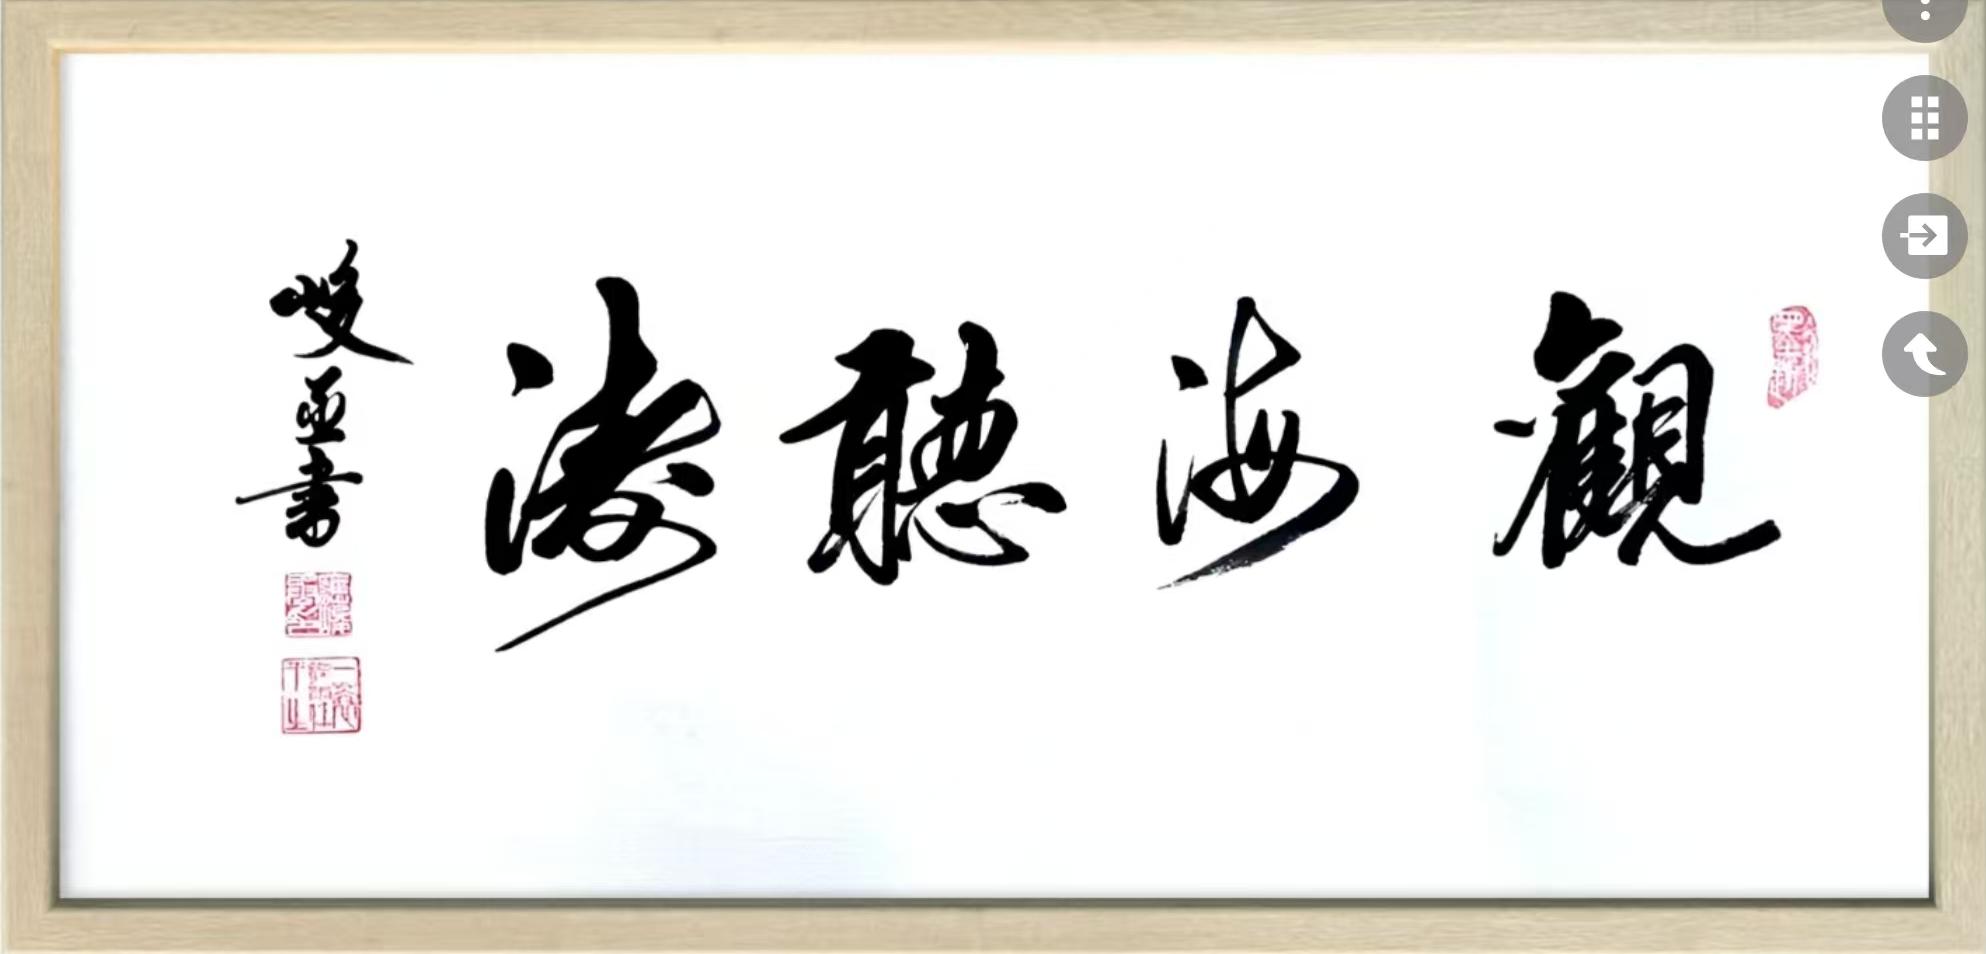 觀海聽濤
峻丞書